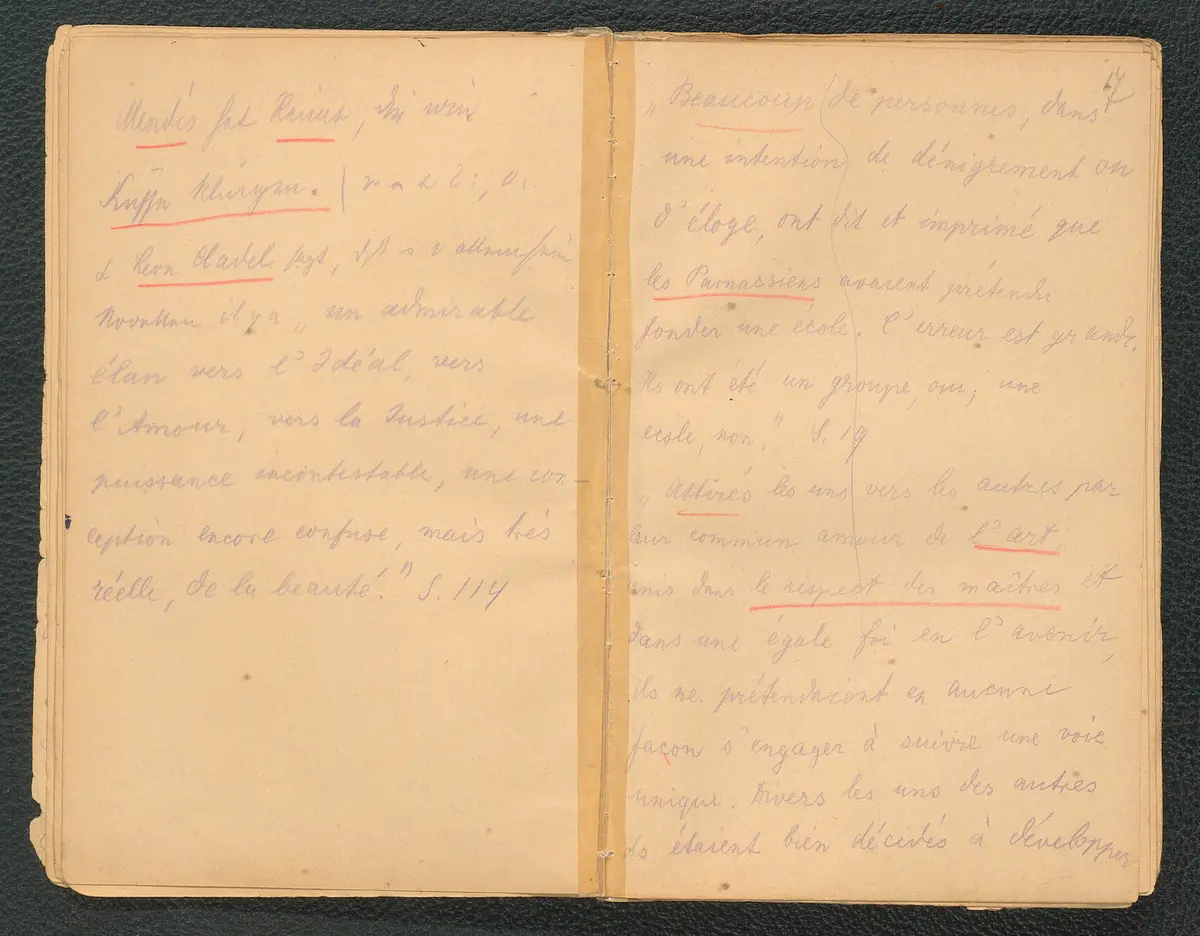 Mendès hat
Leon Cladel sagt,
Novellen il y a „un admirable
élan vers l'Idéal, vers
l'Amour, vers la Justice, une
puissance incontestable, une con-
ception encore confuse, mais très
réelle, de la beauté!" S. 114
17
„Beaucoup de personnes, dans
une intention de dénigrement ou
d'éloge, ont dit et imprimé que
les Parnassiens avaient prétendu
fonder une école. L'erreur est grande.
Ils ont été un groupe, oui; une
école, non." S. 19
„Attirés les uns vers les autres par
leur commun amour de l'art,
unis dans le respect des maîtres et
dans une égale foi en l'avenir,
ils ne prétendaient en aucune
façon s'engager à suivre une voie
unique. Divers les uns des autres
ils étaient bien décidés à développer